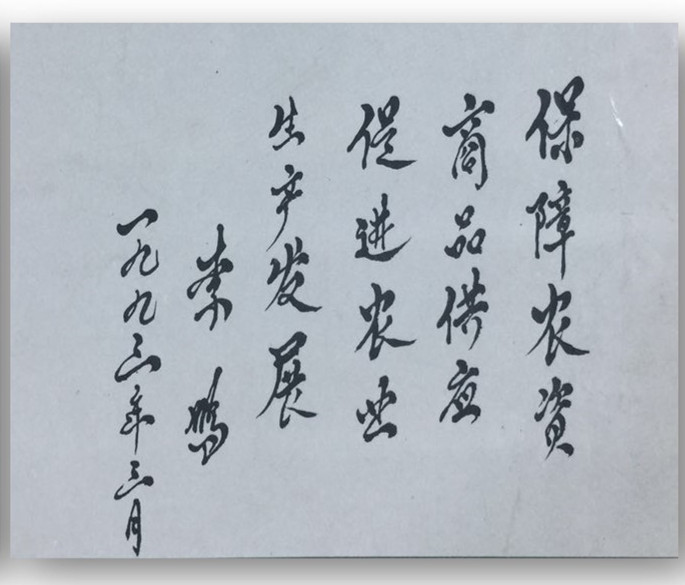 保障农资
商品供应
促进农业
生产发展
李鹏
一九九三年三月